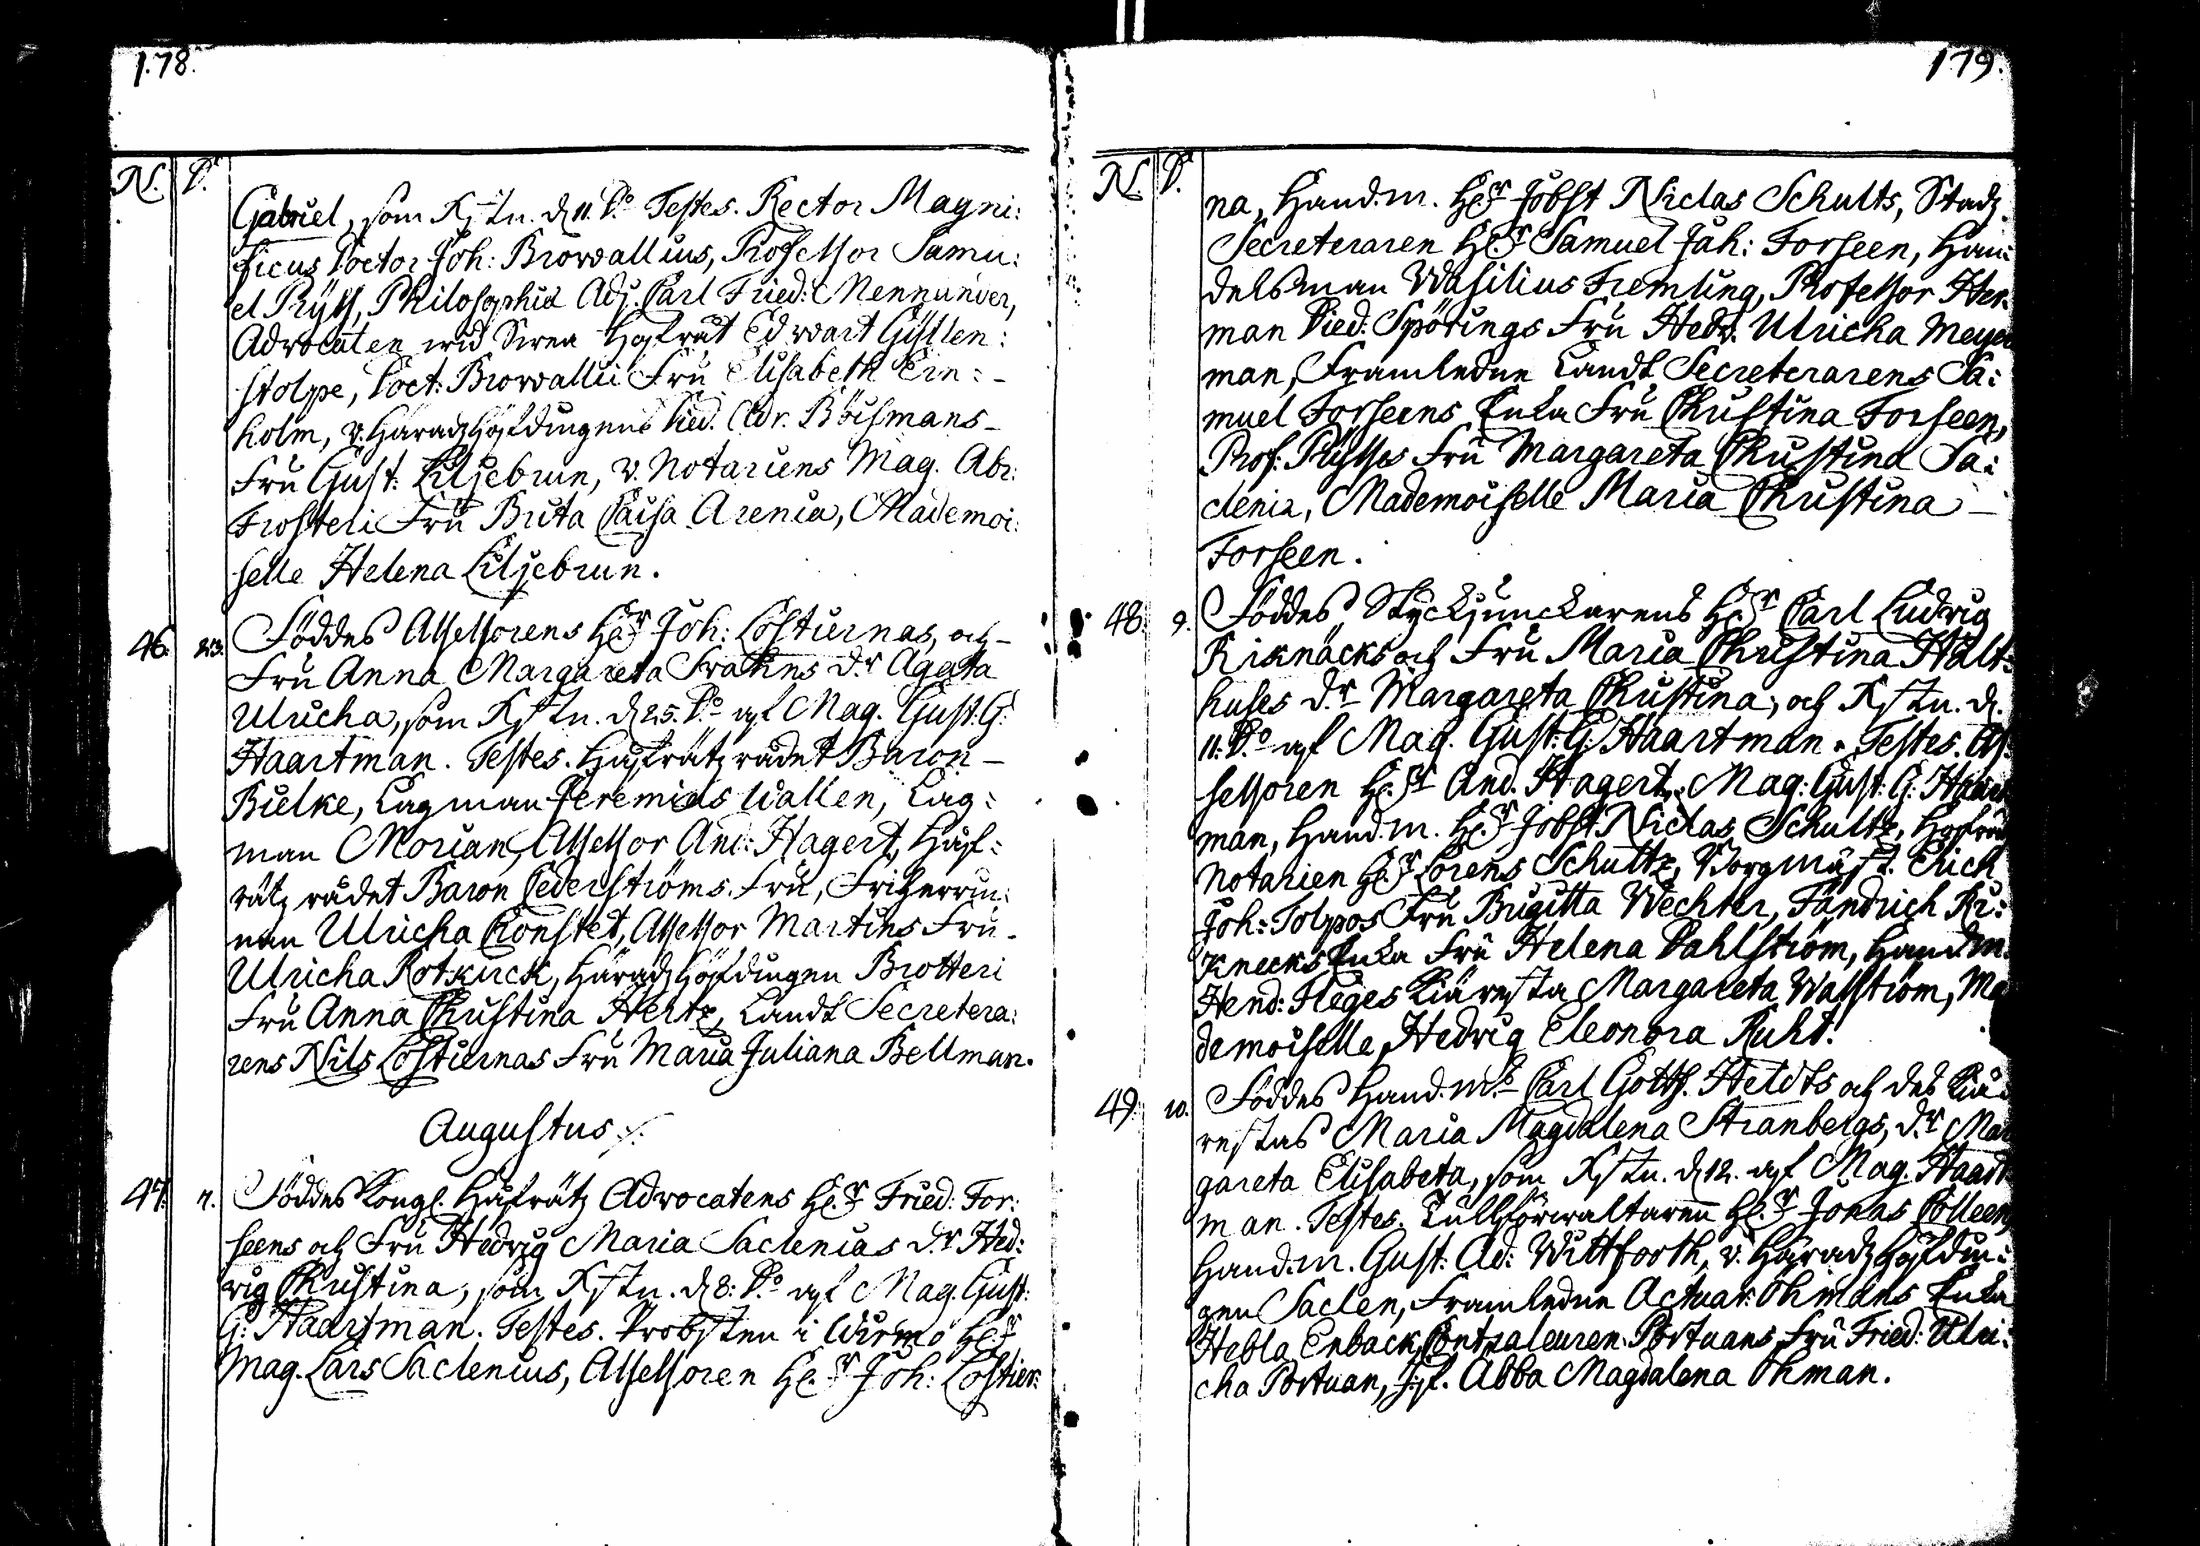 178.
N. D.
Gabriel, som X?stn. d 11. do Testes. Rector Magni:
ficus Doctor Joh: Browallius, Professor Samu:
el Pryss, Philosophiæ Adj. Carl Fried: Mennander,
Advocaten wid Swea Hofrät Edwart Gyllen:
stolpe, Doct: Browallii Fru Elisabeth Ern:
holm, v. HäradzHöfdingens Died. Adr. Böismans
Fru Gust: Liljebrun, v. Notariens Mag. Abr:
Frosteri Fru Brita Caisa Arenia, Mademoi:
selle Helena Liljebrun.
46. 23. Föddes Assessorens Hr Joh: Lostiernas, och
Fru Anna Margareta Svahns dr Agatha
Ulricha, som Xstn. d 25. do af Mag. Gust. G:
Haartman. Testes. Håfrätzrådet Baron
Bielke, Lagman Jeremias Wallen, Lag:
man Morian, Assessor And: Hagert, Håf:
rätz rådet Baron Cederströms Fru, Friherrin:
nan Ulricha Cronstet, Assessor Martins Fru
Ulricha Rotkirck, HäradzHöfdingen Brotteri
Fru Anna Christina Hertz, Landt Secretera:
rens Nils Lostiernas Fru Maria Juliana Bellman.
Augustus ./.
47. 7. Föddes Kongl. Håfrätz Advocatens Hr Fried: For:
seens och Fru Hedvig Maria Saclenias dr Hed:
vig Christina, som Xstn. d 8: do af Mag. Gust:
G: Haartman. Testes. Probsten i Wirmo Hr
Mag. Lars Saclenius, Assessoren Hr Joh: Lostier:
179.
N. D.
na, Hand.m. Hr Jobst Niclas Schults, Stadz
Secreteraren Hr Samuel Joh: Forseen, Han:
delsman Wasilius Fremling, Professor Her:
man Died: Spörings Fru Hedv. Ulricha Meyer
man, Framledne Landt Secreterarens Sa:
muel Forseens Enka Fru Christina Forseen,
Prof: Prysses Fru Margareta Christina Sa:
clenia, Mademoiselle Maria Christina
Forseen.
48. 9. Föddes Styckjunckarens Hr Carl Ludvig
Risknäcks och Fru Maria Christina Hält:
huses dr Margareta Christina, och Xstn. d.
11. do af Mag. Gust: G: Haartman. Testes. As:
sessoren Hr And. Hagert, Mag: Gust: G: Haart
man, Hand.m. Hr Jobst Niclas Schultz, Hofrätz
Notarien Hr Lorens Schultz, Borgmäst. Erich
Joh: Tolpos Fru Brigitta Wechter, Fändrich Ri:
knecks Enka Fru Helena Dahlström, Hand.m.
Hend: Fleges Kiäresta Margareta Walström, Ma
demoiselle Hedvig Eleonora Ruht.
49. 10. Föddes Hand.ms Carl Gotth. Heldts och des Kiä:
restas Maria Magdalena Stranbergs, dr Mar
gareta Elisabeta, som Xstn. d 12. af Mag. Haart
man. Testes. Tullförwaltaren Hr Jonas Polleen,
Hand.m. Gust: Ad: Wittforth, v. HäradzHöfdin:
gen Saclen, Framledne Actuar: Öhmans Enka
Hebla Enback, Contraleuren Portuans Fru Fried: Ulri:
cha Portuan, Jgf. Abba Magdalena Öhman.